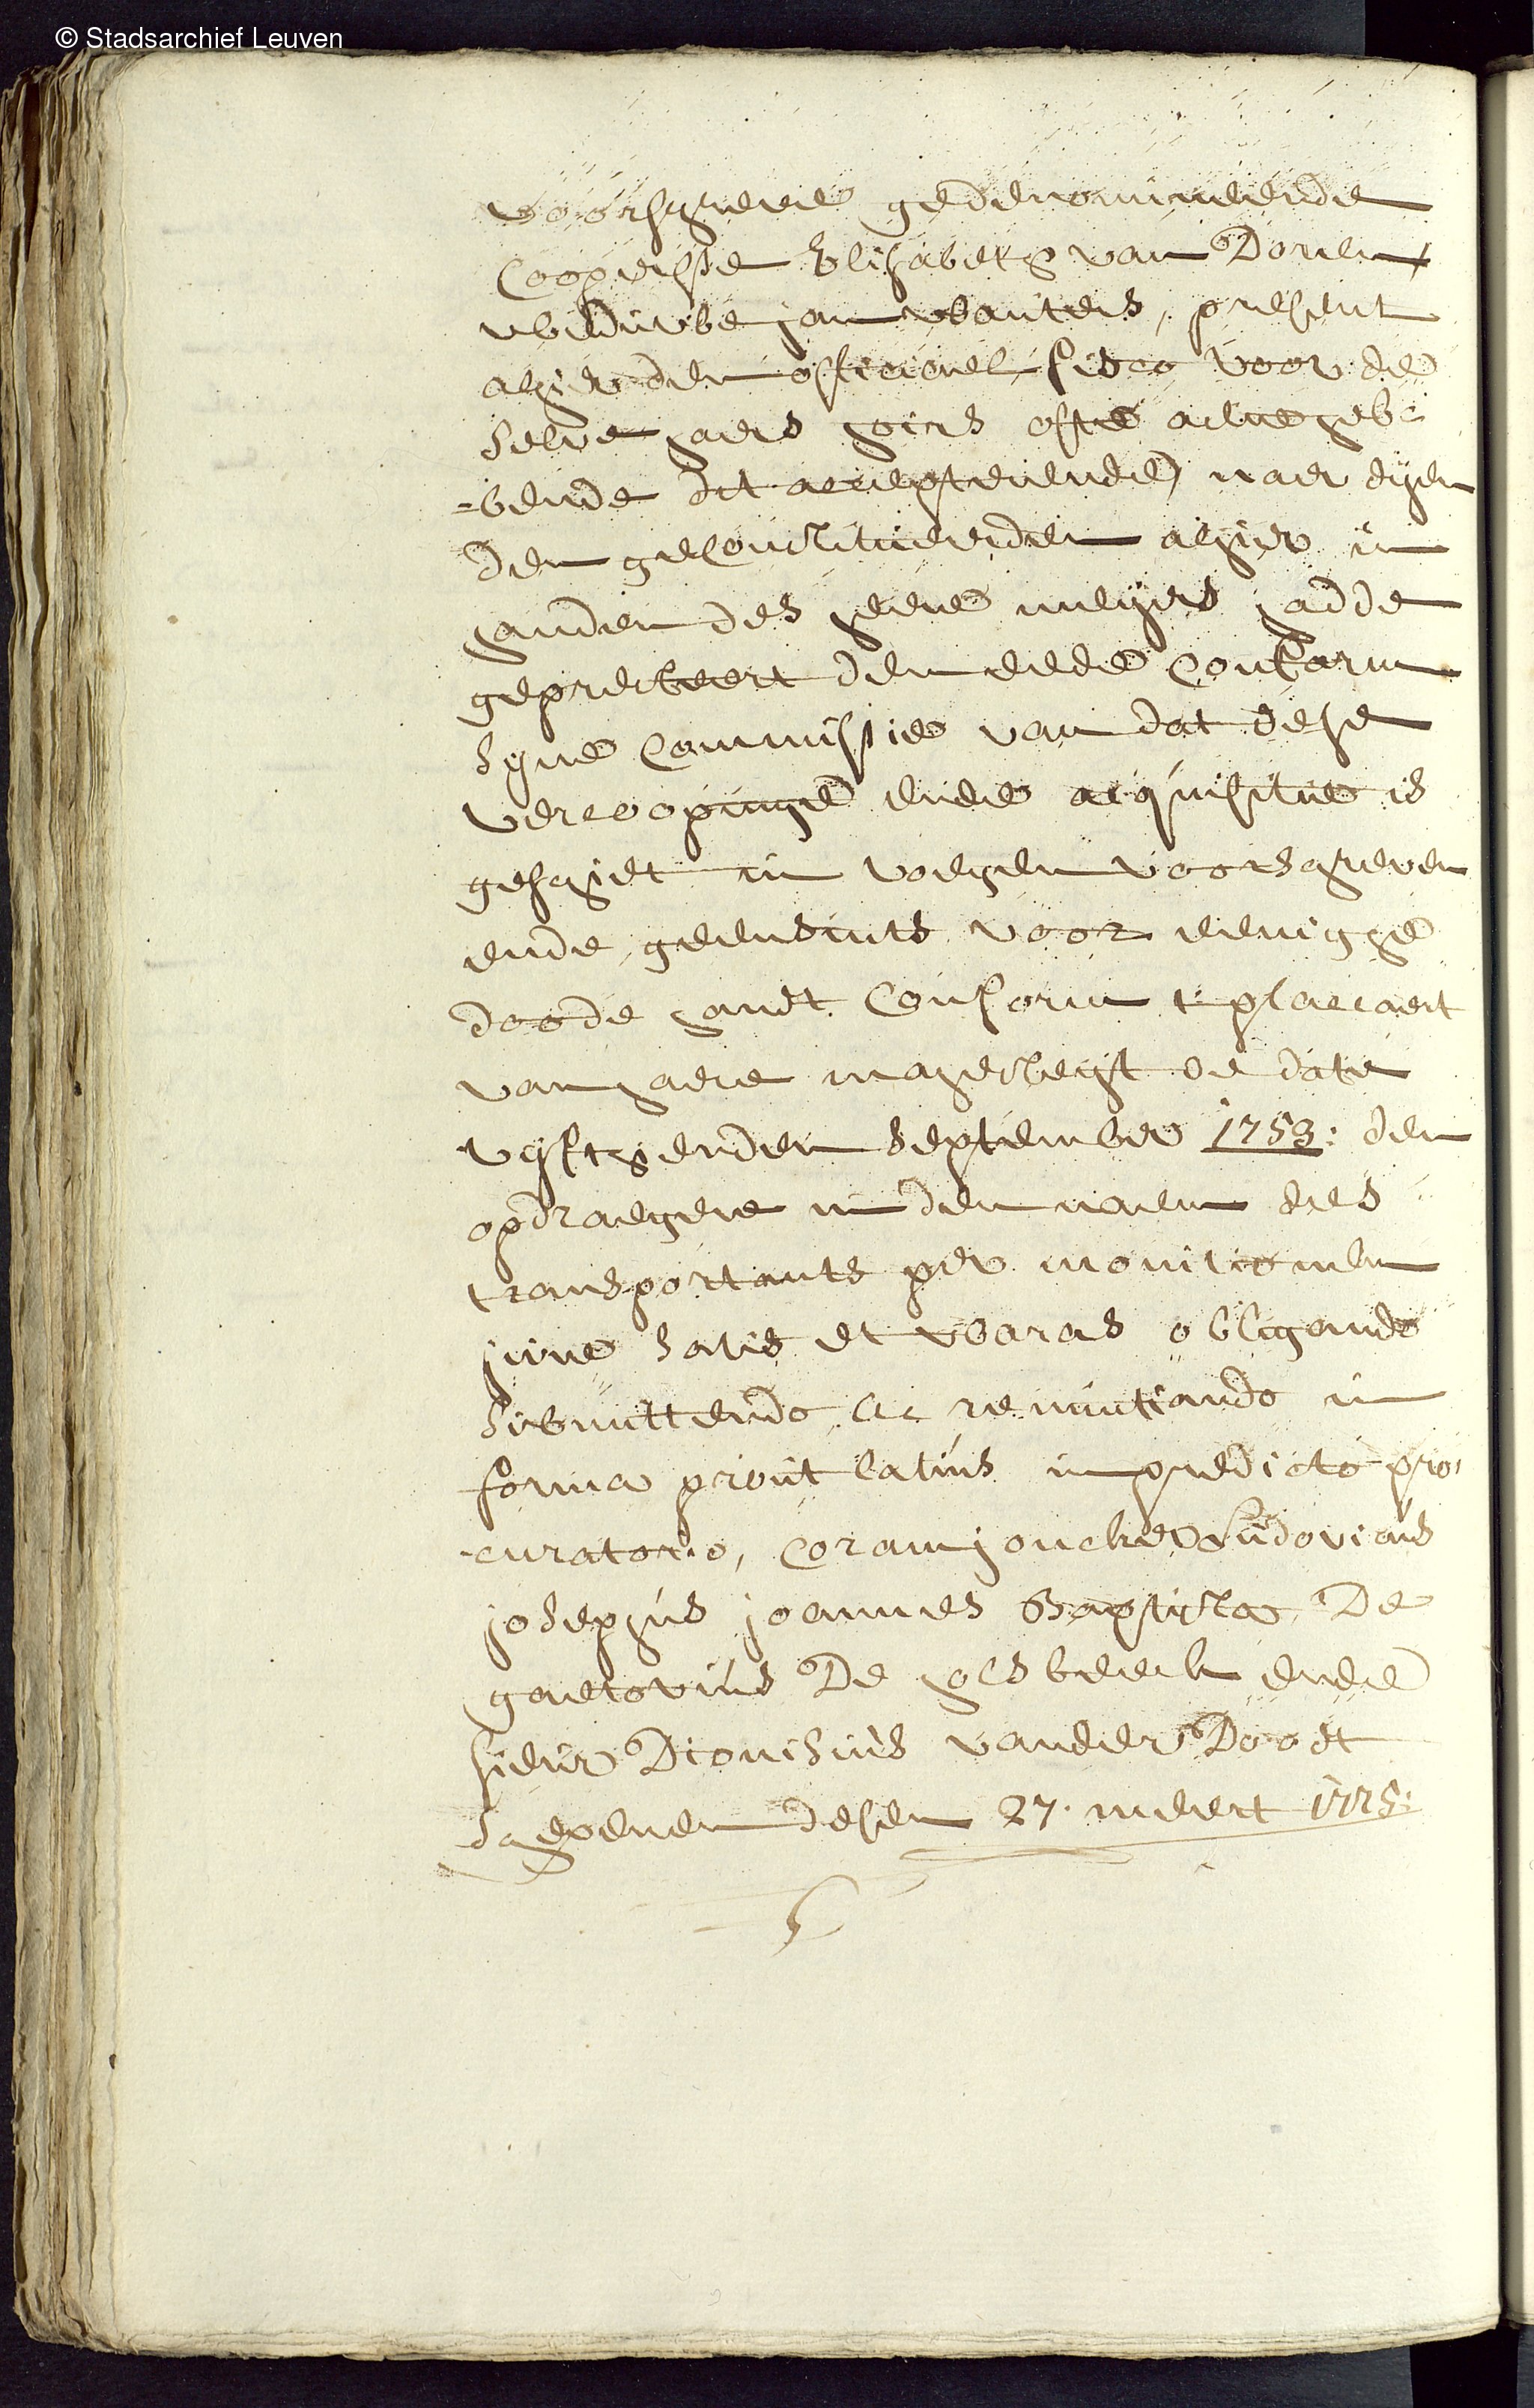 © Stadsarchief Leuven
voorschreve gedenomineerde
Coopersse Elisabeth van Doren
weduwe jan wauters, present
alhier den officiael fisco voor de
selve haers hoirs ofte actie heb-
-bende dit accepterende) naer dyen
den geconstitueerden alhier in
handen des heere meyers hadde
gepresteert den eede conform
syne commissie van dat dese
vercoopinge ende acquisitie is
geschiet in voegen voorschreven
ende geensints voor eenighe
doode handt conform t' placcaert
van haere majesteyt de date
vyfthienden september 1753: den
opdraegere in den naem des
transportants per monitionem
jure satis et waras obligando
submittendo ac renuntiando in
forma prout latius in predicto pro-
-curatorio, coram joncker Ludovicus
josephus joannes Baptista De
De holsbeeck ende
sieur Dionisius vander Doodt
schepenen desen 27. meert 1775: